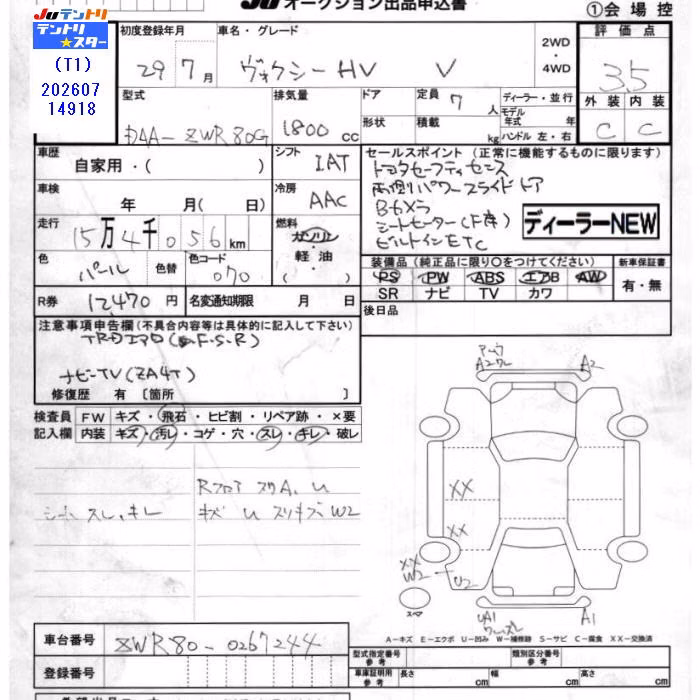 Juテントリ
テントリ★スター
(T1)
202607
14918
Ju オークション出品申込書
①会場控
初度登録年月
29 7月
車名・グレード
ヴォクシーHV V
2WD
・
4WD
評価点
3.5
外装 内装
C C
型式
DAA-ZWR80G
排気量
1800cc
ドア
形状
定員 7人
積載 kg
ディーラー・並行
モデル年式 年
ハンドル 左・右
車歴
自家用・( )
シフト
IAT
セールスポイント (正常に機能するものに限ります)
トヨタセーフティセンス
両側パワースライドドア
Bカメラ
シートヒーター(F席)
ビルトインETC
ディーラーNEW
車検
年 月(日)
冷房
AAC
走行
15万4千056km
燃料
ガソリン
・
軽油
( )
色
パール
色替
色コード
070( )
装備品 (純正品に限り○をつけてください)
PS PW ABS エアB AW
SR ナビ TV カワ
新車保証書
有・無
R券 12,470円
名変通知期限 月 日
後日品
注意事項申告欄(不具合内容等は具体的に記入して下さい)
TRDエアロ(F.S.R)
ナビ-TV(ZA4T)
修復歴 有[箇所 ]
検査員記入欄
FW キズ・飛石・ヒビ割・リペア跡・×要
内装 キズ・汚レ・コゲ・穴・スレ・キレ・破レ
シートスレ、キレ
Rフロア スクA、U
キズ U スリキズW2
A2 ワレ
A2
XX
XX
XX
W2
U2
スペア
UA1
A1
A-キズ E-エクボ U-凹み W-補修跡 S-サビ C-腐食 XX-交換済
車台番号
ZWR80-0267244
登録番号
型式指定番号
参考
類別区分番号
参考
車庫証明用
参考
長さ cm
幅 cm
高さ cm